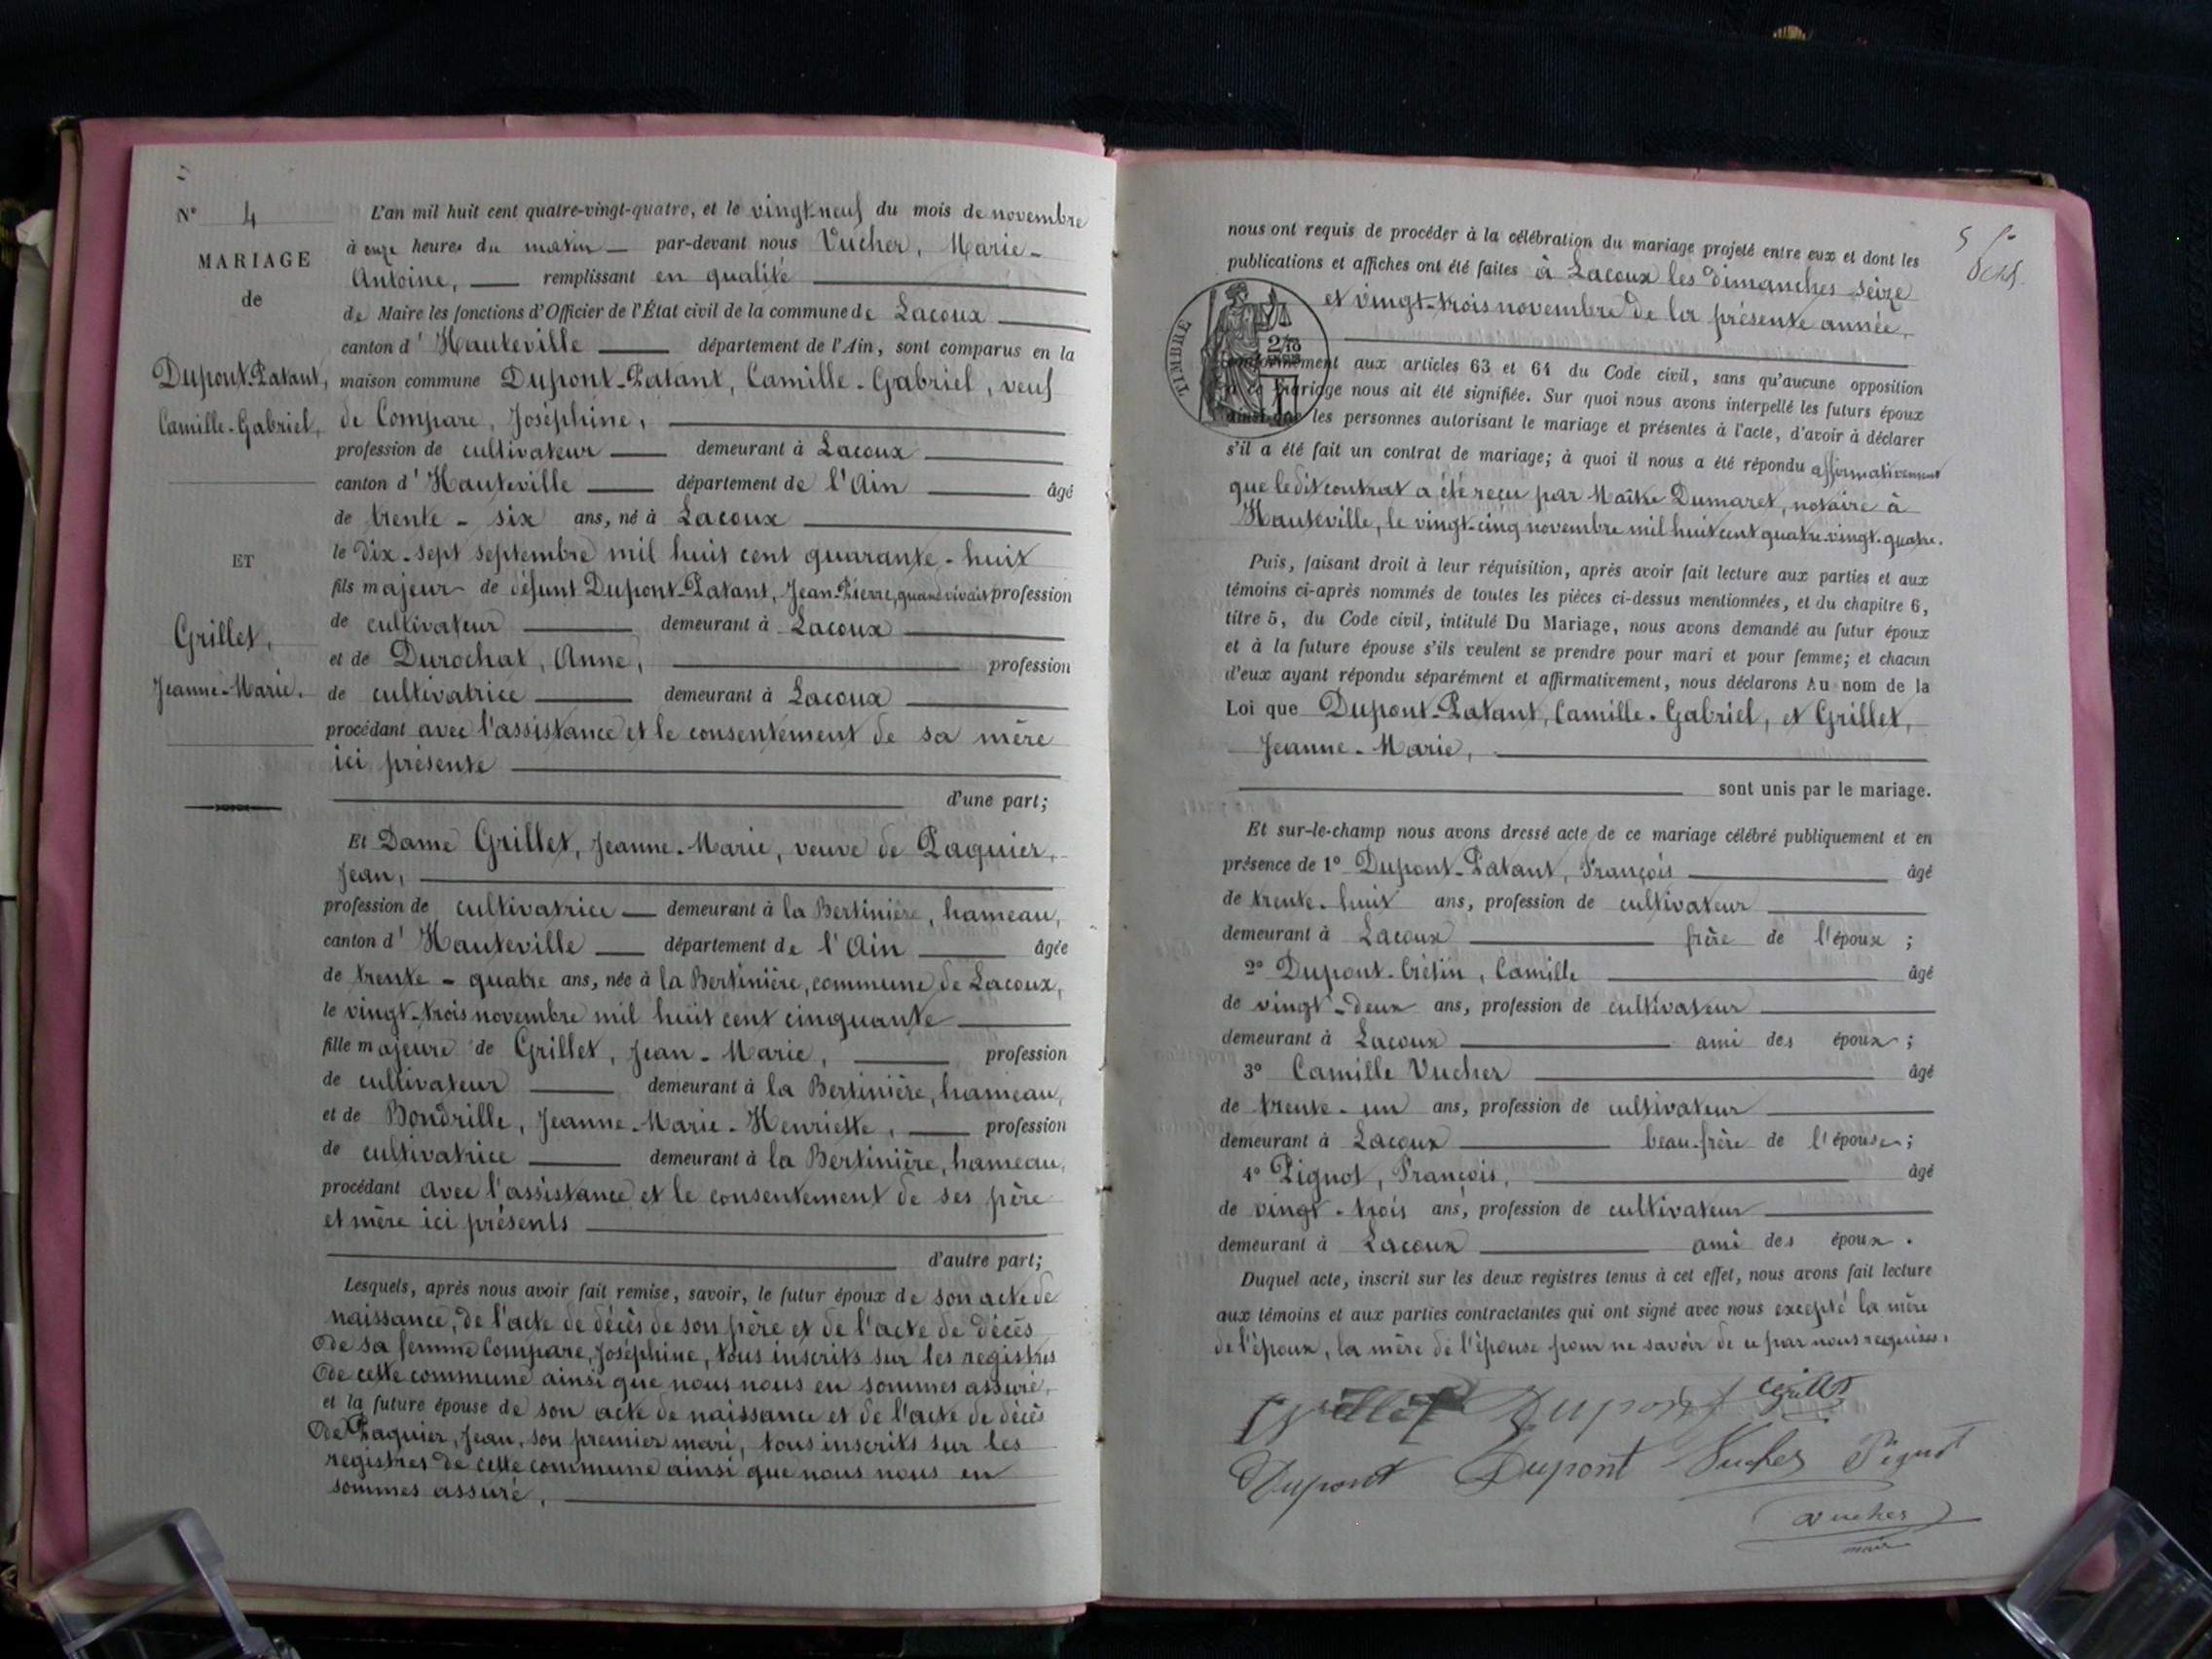 N° 4
MARIAGE
de
Dupont-Patant,
Camille-Gabriel,
ET
Grillet,
Jeanne-Marie.
L'an mil huit cent quatre-vingt-quatre, et le vingt-neuf du mois de novembre
à onze heures du matin par-devant nous Vucher, Marie-
Antoine, remplissant en qualité
de Maire les fonctions d'Officier de l'État civil de la commune de Lacoux
canton d'Hauteville département de l'Ain, sont comparus en la
maison commune Dupont-Patant, Camille-Gabriel, veuf
de Compare, Joséphine,
profession de cultivateur demeurant à Lacoux
canton d'Hauteville département de l'Ain âgé
de trente-six ans, né à Lacoux
le dix-sept septembre mil huit cent quarante-huit
fils majeur de défunt Dupont-Patant, Jean-Pierre, quand vivait profession
de cultivateur demeurant à Lacoux
et de Durochat, Anne, profession
de cultivatrice demeurant à Lacoux
procédant avec l'assistance et le consentement de sa mère
ici présente
d'une part;
Et Dame Grillet, Jeanne-Marie, veuve de Paquier,
Jean,
profession de cultivatrice demeurant à la Bertinière, hameau,
canton d'Hauteville département de l'Ain âgée
de trente-quatre ans, née à la Bertinière, commune de Lacoux,
le vingt-trois novembre mil huit cent cinquante
fille majeure de Grillet, Jean-Marie, profession
de cultivateur demeurant à la Bertinière, hameau,
et de Bondrille, Jeanne-Marie-Henriette, profession
de cultivatrice demeurant à la Bertinière, hameau,
procédant avec l'assistance et le consentement de ses père
et mère ici présents
d'autre part;
Lesquels, après nous avoir fait remise, savoir, le futur époux de son acte de
naissance, de l'acte de décès de son père et de l'acte de décès
de sa femme Compare, Joséphine, tous inscrits sur les registres
de cette commune ainsi que nous nous en sommes assuré,
et la future épouse de son acte de naissance et de l'acte de décès
de Paquier, Jean, son premier mari, tous inscrits sur les
registres de cette commune ainsi que nous nous en
sommes assuré,
nous ont requis de procéder à la célébration du mariage projeté entre eux et dont les
publications et affiches ont été faites à Lacoux les dimanches seize
et vingt-trois novembre de la présente année,
TIMBRE
conformément aux articles 63 et 64 du Code civil, sans qu'aucune opposition
à ce mariage nous ait été signifiée. Sur quoi nous avons interpellé les futurs époux
ainsi que les personnes autorisant le mariage et présentes à l'acte, d'avoir à déclarer
s'il a été fait un contrat de mariage; à quoi il nous a été répondu affirmativement
que ledit contrat a été reçu par Maître Dumaret, notaire à
Hauteville, le vingt-cinq novembre mil huit cent quatre-vingt-quatre.
Puis, faisant droit à leur réquisition, après avoir fait lecture aux parties et aux
témoins ci-après nommés de toutes les pièces ci-dessus mentionnées, et du chapitre 6,
titre 5, du Code civil, intitulé Du Mariage, nous avons demandé au futur époux
et à la future épouse s'ils veulent se prendre pour mari et pour femme; et chacun
d'eux ayant répondu séparément et affirmativement, nous déclarons Au nom de la
Loi que Dupont-Patant, Camille-Gabriel, et Grillet,
Jeanne-Marie,
sont unis par le mariage.
Et sur-le-champ nous avons dressé acte de ce mariage célébré publiquement et en
présence de 1° Dupont-Patant, François âgé
de trente-huit ans, profession de cultivateur
demeurant à Lacoux frère de l'époux;
2° Dupont-Crétin, Camille âgé
de vingt-deux ans, profession de cultivateur
demeurant à Lacoux ami des époux;
3° Camille Vucher âgé
de trente-un ans, profession de cultivateur
demeurant à Lacoux beau-frère de l'épouse;
4° Pignot, François, âgé
de vingt-trois ans, profession de cultivateur
demeurant à Lacoux ami des époux.
Duquel acte, inscrit sur les deux registres tenus à cet effet, nous avons fait lecture
aux témoins et aux parties contractantes qui ont signé avec nous excepté la mère
de l'époux, la mère de l'épouse pour ne savoir de ce par nous requises.
Grillet Dupont Grillet
Dupont Dupont Vucher Pignot
Vucher
maire